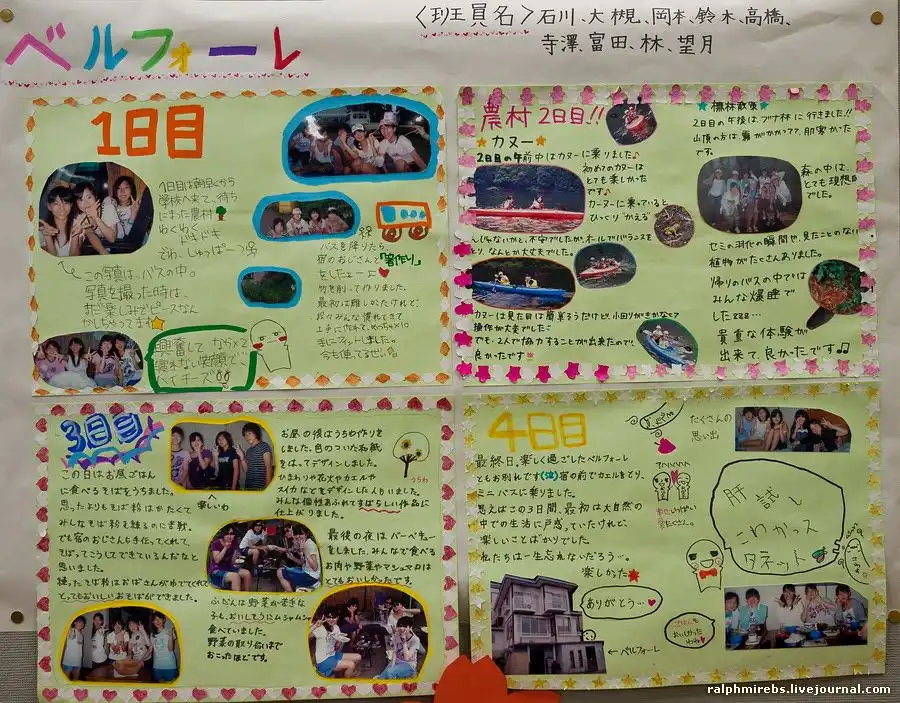 ベルフォーレ
〈班員名〉石川、大槻、岡本、鈴木、高橋、
寺澤、冨田、林、望月
1日目
1日目は朝早くから
学校へ来て、待ち
にまった農村
わくわく
ドキドキ
この写真は、バスの中。
写真を撮った時は、
まだ楽しみでピースなん
かしちゃってます
興奮して
バスを降りたら、
宿のおじさんと
「箸作り」
をしたよー♪
竹を削って作りました。
最初は難しかたけれど、
段々みんな慣れてきて
上手に作れて、めっちゃ×10
手にフィットしました。
今も使ってるぜぃ
農村2日目!!
★カヌー★
2日目の午前中はカヌーに乗りました♪
初めてのカヌーは
とても楽しかった
です♪
カヌーに乗っていると
ひっくり"かえる"
んじゃないかと、不安でしたが、オールでバランスを
とり、なんとか大丈夫でした。
カヌーは見た目は簡単そうだけど、小回りがきかなくて
操作が大変でした
でも、2人で協力することが出来たので、
良かったです
★橅林散策★
2日目の午後は、ブナ林に行きました!!
山頂の方は、霧がかかってて、肌寒かった
です。
森の中は、
とても理想的
でした。
セミの羽化の瞬間や、見たことのない
植物がたくさんありました。
帰りのバスの中では
みんな爆睡で
したzzz…
貴重な体験が
出来て、良かったです♫
3日目
この日はお昼ごはん
に食べるそばをうちました。
思ったよりもそば粉はかたくて
みんなそば粉を練るのに苦戦。
でも宿のおじさんも手伝ってくれて、
そばってこうしてできているんだなと
思いました。
練ったそば粉はおばさんがゆでてくれて
とってもおいしいおそばができました。
楽しいわ
お昼の後はうちわ作りを
しました。色のついた和紙
をはってデザインしました。
ひまわりや花火やカエルや
スイカなどをデザインした人もいました。
みんな個性あふれてすばらしい作品に
仕上がりました。
うちわ
最後の夜はバーベキュー
をしました。みんなで食べる
お肉や野菜やマシュマロは
とてもおいしかったです。
ふだんは野菜が苦手な
子も、おいしそうにムシャムシャ
食べていました。
野菜の取り合いまで
おこったほどです。
4日目
最終日。楽しく過ごしたベルフォーレ
ともお別れです(泣)宿の前でカエルをとり、
ミニバスに乗りました。
思えばこの3日間、最初は大自然の
中での生活に戸惑っていたけれど、
楽しいことばかりでした。
私たちは一生忘れないだろう…。
楽しかった★
ありがとう…♥
←ベルフォーレ
たくさんの
思い出
肝試し
こわかっス
タネット
ごはんも
おいしかった
わぁ
ralphmirebs.livejournal.com